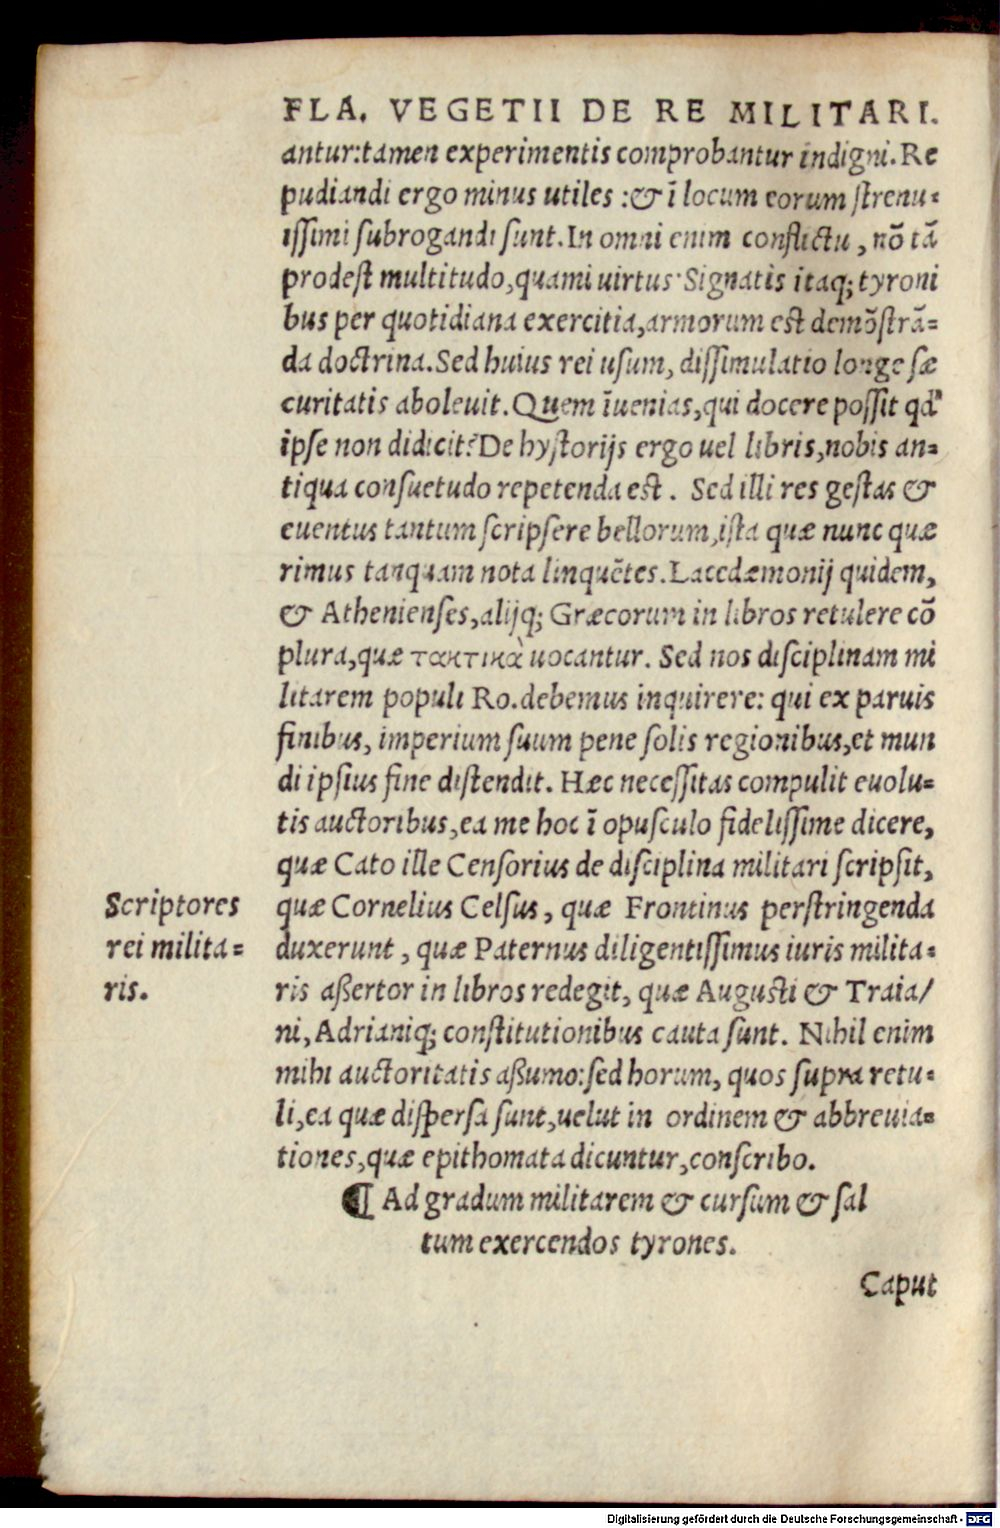 FLA. VEGETII DE RE MILITARI.
antur:tamen experimentis comprobantur indigni. Re
pudiandi ergo minus utiles :& ī locum eorum ſtrenu-
iſſimi ſubrogandi ſunt. In omni enim conflictu, nō tā
prodeſt multitudo, quami uirtus· Signatis itaq; tyroni
bus per quotidiana exercitia, armorum est demōſtrā-
da doctrina. Sed huius rei uſum, diſſimulatio longe ſæ
curitatis aboleuit. Quem īuenias, qui docere poſſit qd'
ipſe non didicit? De hyſtorijs ergo uel libris, nobis an-
tiqua conſuetudo repetenda est. Sed illi res geſtas &
euentus tantum ſcripſere bellorum, iſta quæ nunc quæ
rimus tanquam nota linquētes. Lacedæmonij quidem,
& Athenienſes, alijq; Græcorum in libros retulere cō
plura, quæ τακτικὰ uocantur. Sed nos diſciplinam mi
litarem populi Ro. debemus inquirere: qui ex paruis
finibus, imperium ſuum pene ſolis regionibus, et mun
di ipſius fine diſtendit. Hæc neceſſitas compulit euolu-
tis auctoribus, ea me hoc ī opuſculo fideliſſime dicere,
quæ Cato ille Cenſorius de diſciplina militari ſcripſit,
Scriptores
rei milita-
ris.
quæ Cornelius Celſus, quæ Frontinus perſtringenda
duxerunt, quæ Paternus diligentiſſimus iuris milita-
ris aßertor in libros redegit, quæ Augusti & Traia/
ni, Adrianiq; conſtitutionibus cauta ſunt. Nihil enim
mihi auctoritatis aßumo: ſed horum, quos ſupra retu-
li, ea quæ diſperſa ſunt, uelut in ordinem & abbreuia-
tiones, quæ epithomata dicuntur, conſcribo.
¶ Ad gradum militarem & curſum & ſal
tum exercendos tyrones.
Caput
Digitalisierung gefördert durch die Deutsche Forschungsgemeinschaft - DFG